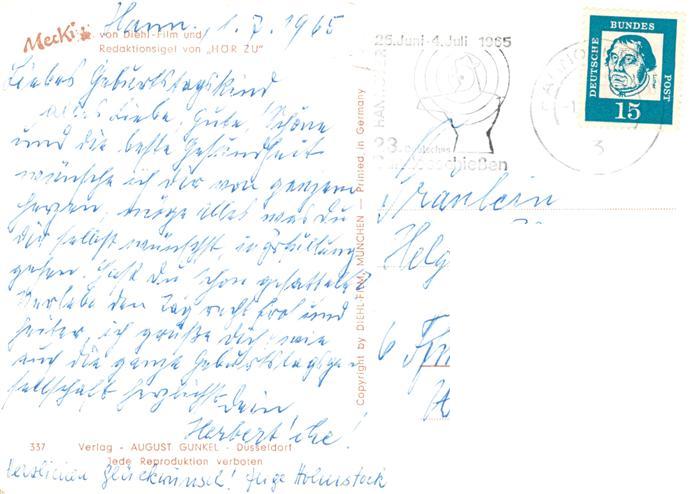 Hann. 1.7.1965
Mecki von Diehl-Film und
Redaktionsigel von „HÖR ZU"
Liebes Geburtstagskind
alles Liebe, Gute, Schöne
und die beste Gesundheit
wünsche ich dir von ganzem
Herzen, möge alles was Du
Dir selbst wünschst, in Erfüllung
gehen. Hast Du schon gefattelt?
Verlebe den Tag recht froh und
heiter, ich grüße Dich, wie
auch die ganze Geburtstagsge-
sellschaft herzlichst
Dein
Herbert'che!
337 Verlag - AUGUST GUNKEL - Düsseldorf
Jede Reproduktion verboten
herzlichen Glückwunsch! Inge
Copyright by DIEHL-FILM, MÜNCHEN — Printed in Germany
25. Juni - 4. Juli 1965
23. Deutsches
schießen
DEUTSCHE BUNDES POST
15
3
Fräulein
Helg
6 Ffm